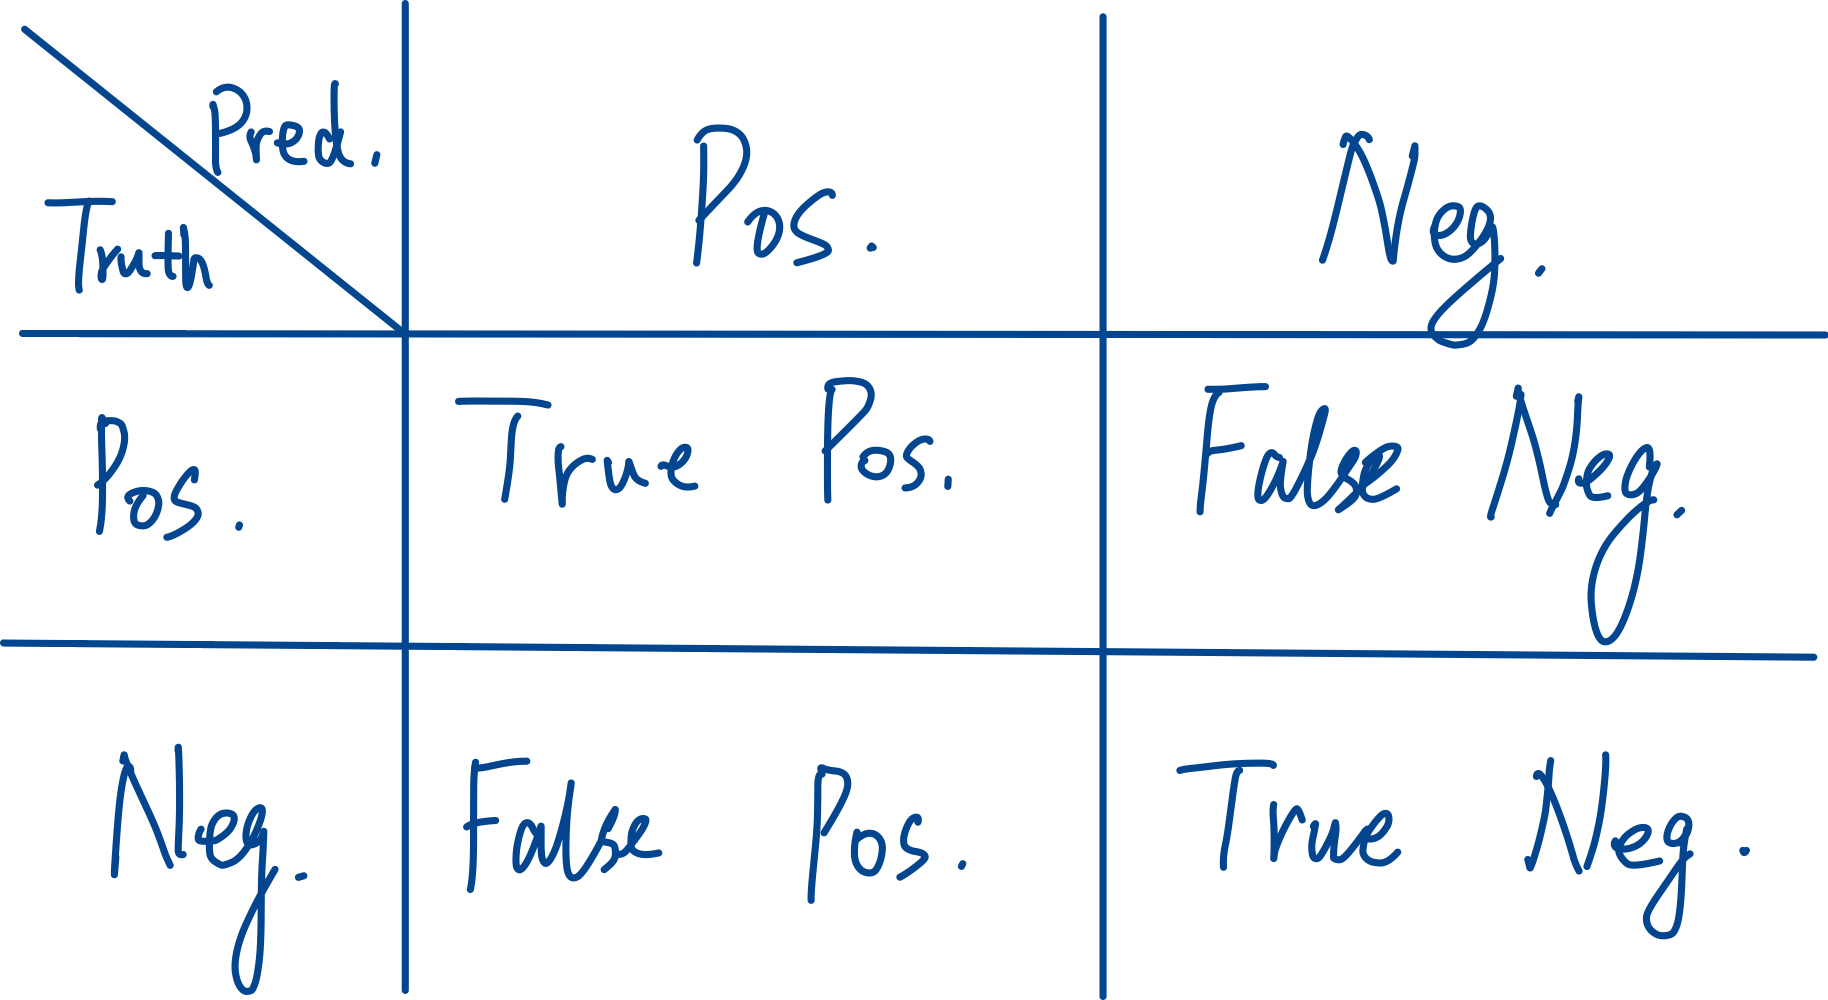 Pred.
Truth
Pos. Neg.
Pos. True Pos. False Neg.
Neg. False Pos. True Neg.